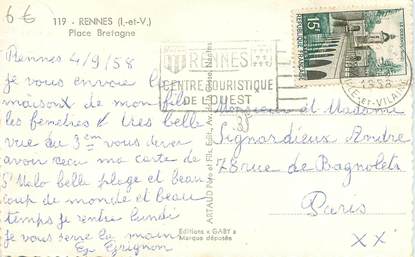 6€
119 - RENNES (I.-et-V.)
Place Bretagne
Rennes 4/9/58
je vous envoie la
maison de mon fils
les fenetres tres belle
vue du 3em vous devez
avoir recu ma carte de
St Malo belle plage et beau
coup de monde et beau
temps je rentre lundi
je vous serre la main
RENNES
CENTRE TOURISTIQUE
DE L'OUEST
15F
REPUBLIQUE FRANÇAISE
1958
ILLE-et-VILAINE
ARTAUD Père et Fils, Édit.
Monsieur et Madame
Signardieux Andre
78 rue de Bagnolets
Paris
XX
Editions « GABY »
Marque déposée